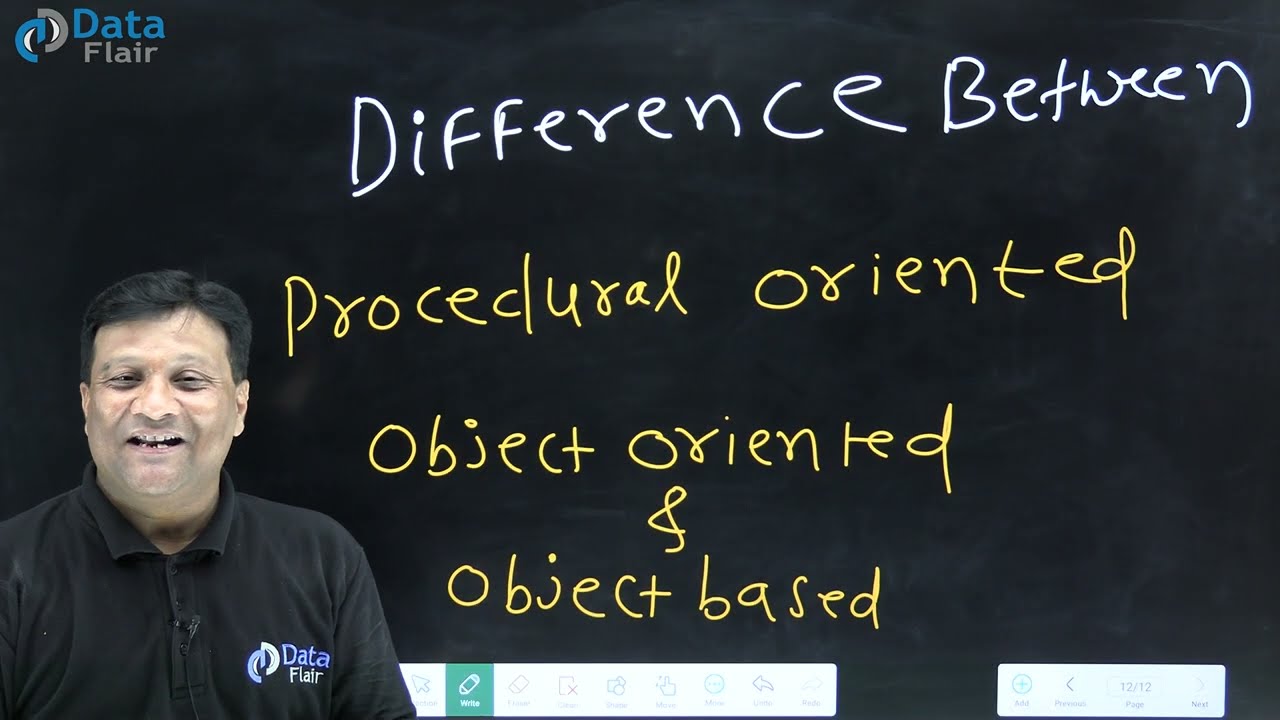 Data
Flair
Difference Between
Procedural oriented
Object oriented
&
Object based
Data
Flair
Write
Eraser
Clear
Shape
Move
More
Undo
Redo
Add
Previous
12/12
Page
Next